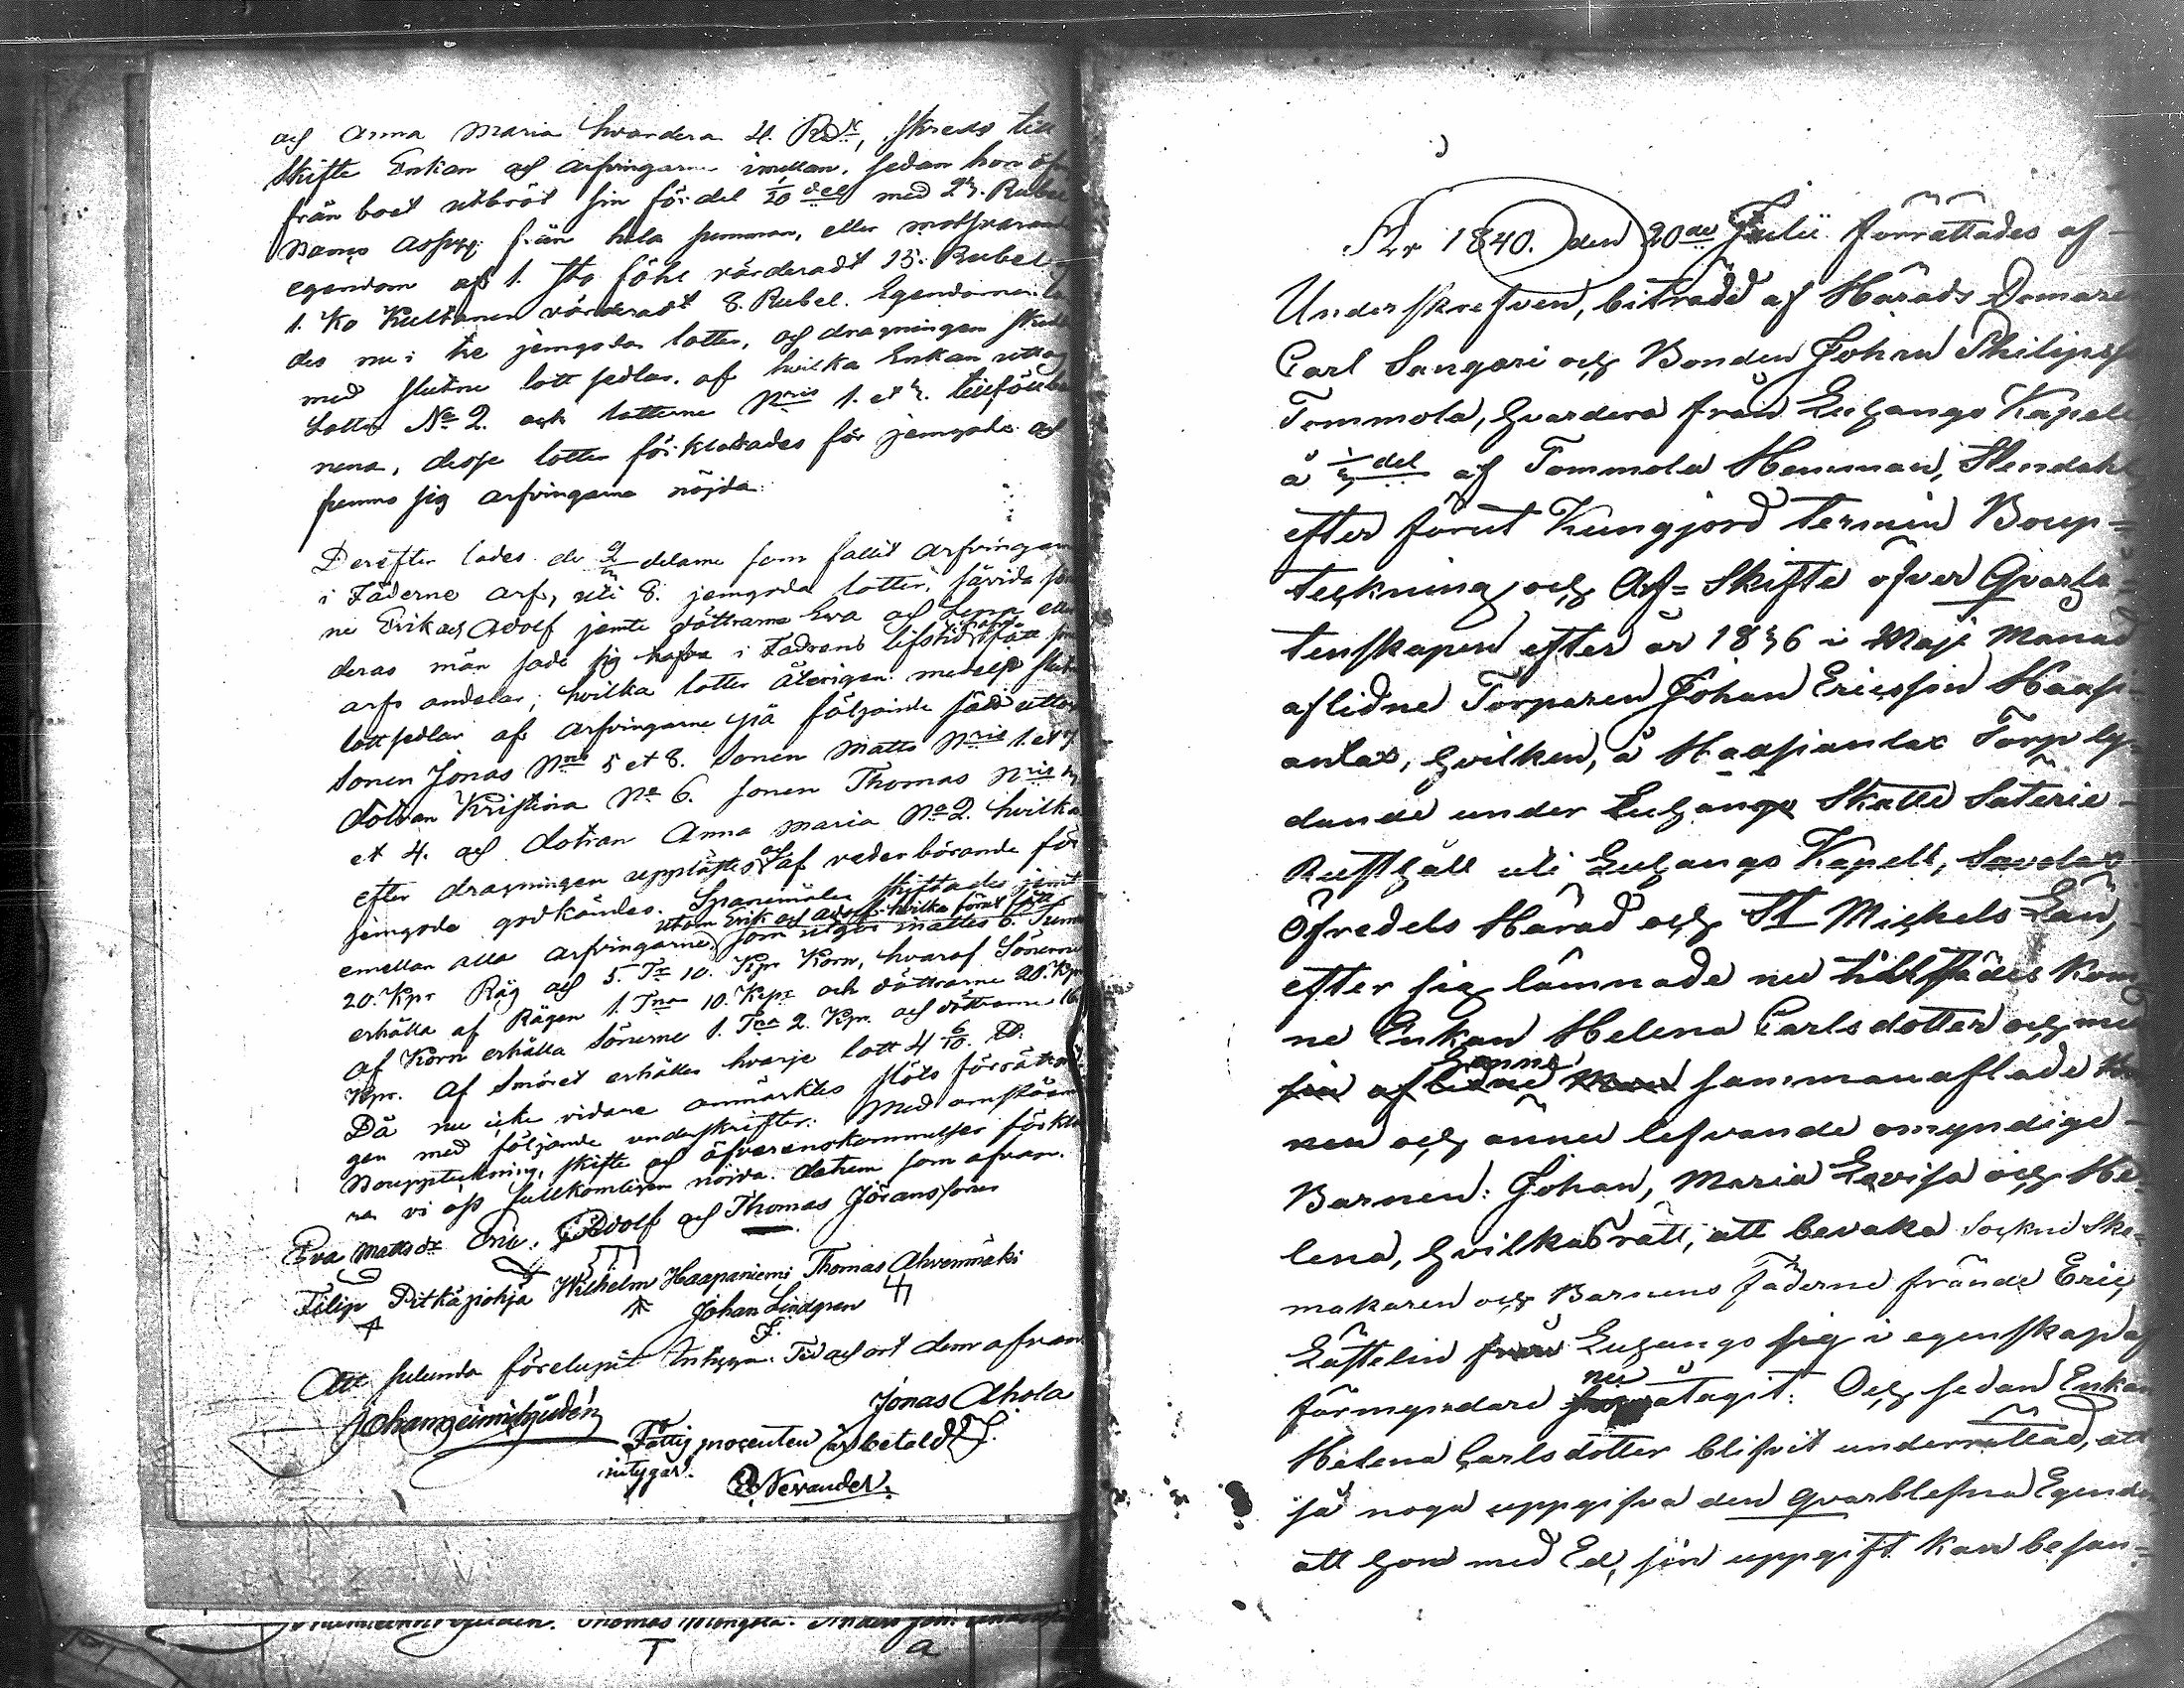 och Anna Maria hvardera 4. Rub, skreds till
skifte Enkan och arfvingarne imellan, sedan hon
från boet utbröt sin fördel 1/20 del med 23. Rubel
Banco Assign från hela summan, eller motsvarande
egendom af 1. Sto föhl värderadt 15. Rubel
1. Ko Kultanen värderadt 8. Rubel. Egendomen
des nu i tre jemgoda lotter, och dragningen skedde
med slutne lott sedlar, af hvilka Enkan uttog
Lotten No 2. och lotterne Nris 1. et 3. tillföllo
nena, desse lotter förklarades för jemgoda och
funno sig arfvingarne nöjda.
Derefter lades de 2/3 delarne som fallit arfvingarne
i Fäderne arf, uti 8. jemgoda lotter, såvida
ne Erik och Adolf jemte döttrarne Eva och Lena eller
deras män sade sig hafva i Fadrens lifstid fått
arfs andelar, hvilka lotter återigen medelst slutne
lottsedlar af arfvingarne på följande sätt uttogs
Sonen Jonas Nris 5 et 8. Sonen Matts Nris 1. et 7
dottran Kristina No 6. sonen Thomas Nris 3
et 4. och dotran Anna Maria No 2. hvilka
efter dragningen upplästes och af vederbörande för
jemgoda godkändes. Spanemålen skiftades jemt
utom Erik och Adolf hvilka förut fått
emellan alla arfvingarne, som utgör mättes 6. Tunnor
20. Kpr Råg och 5. Tr 10. Kpr Korn, hvaraf Sönerne
erhålla af Rågen 1. Tna 10. Kpr och döttrarne 20. Kpr
af Korn erhålla Sönerne 1. Tna 2. Kpr. och döttrarne 16
Kpr. Af Smöret erhålles hvarje lott 4 6/10. lb.
Då nu icke vidare anmärktes slöts förrättnin
gen med följande underskrifter: Med omstående
Bouppteckning, skifte och öfverenskommelser förkla
ra vi oss fullkomligen nöjda. datum som ofvan.
Eva Mattsdr Eric. Adolf och Thomas Jöransöner
Filip Pitkäpohja Wilhelm Haapaniemi Thomas Ahvenmäki
Johan Lindgren
Att sålunda förelupit intyga. Tid och ort som ofvan
Jonas Ahola
Fattig procenten är betald
intygar.
Nevander.
Thomas
År 1840. den 20de Julii förrättades af
Underskrefven, biträdd af Härads Domaren
Carl Sangari och Bonden Johan Philipsson
Tommola, hvardera från Luhango Kapell
å 1/3 del af Tommola Hemman,
efter förut Kungjord termin Boup=
teckning och Arf= Skifte öfver Qvarlå=
tenskapen efter år 1836 i Maji Månad
aflidne Torparen Johan Ericsson Haapi
anlax, hvilken, å Haapianlax Torp ly=
dande under Luhango Skatte Säterie
Rusthåll uti Luhango Kapell, Savolax
Öfredels Härad och St Michels Län,
efter sig lämnade nu tillstädes Kom
ne Enkan Helena Carlsdotter och med
honne
sin aflidne Man sammanaflade
nen och ännu lefvande omyndige
Barnen: Johan, Maria Lovisa och He=
lena, hvilkas rätt, att bevaka Socknd Sko=
makaren och Barnens fäderne frände Eric
från Luhango sig i egenskap af
nu
förmyndare åtagit. Och sedan Enkan
Helena Carlsdotter blifvit underrättad, att
så noga uppgifva den qvarblefna Egendo
att hon med Ed, sin uppgift kan besan=